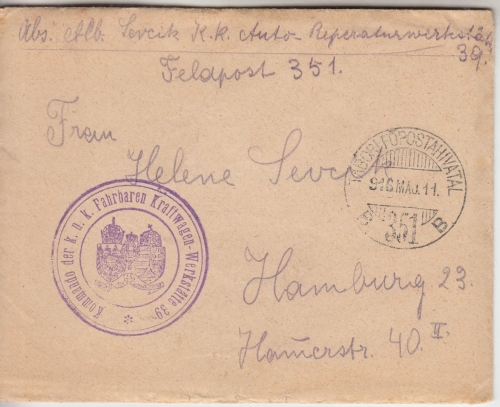 Abs. Alb. Sevcik K.k. Auto-Reperaturwerkstätte
39.
Feldpost 351.
Frau
Helene Sevcik
TÁBORI POSTAHIVATAL
916 MÁJ. 11.
B
351
Kommando der k. u. k. Fahrbaren Kraftwagen-Werkstätte 39
Hamburg 23.
Hamerstr. 40 II.